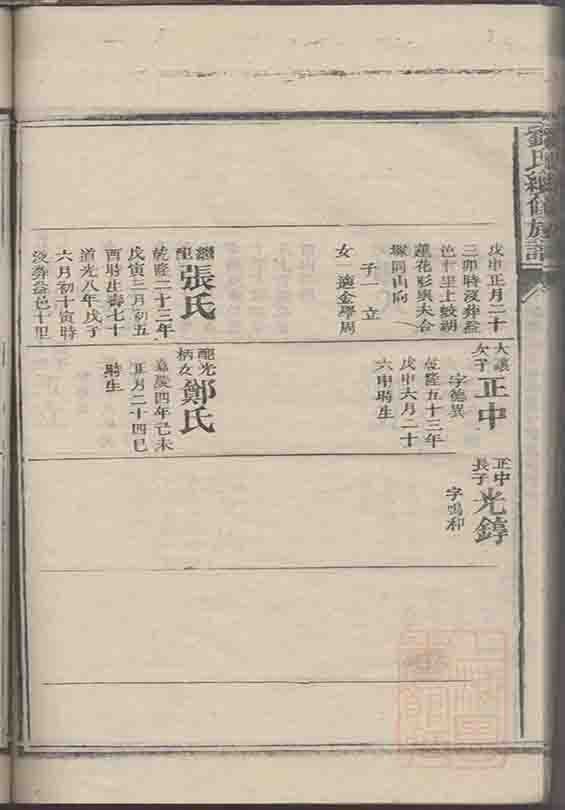 氏續修族譜
戊申正月二十
三卯時沒葬益
邑十里上鮫湖
蓮花形與夫合
塚同山向
子一 立
女 適金學周
繼配張氏
乾隆二十三年
戊寅三月初五
酉時生壽七十
道光八年戊子
六月初十寅時
沒葬益邑十里
大讓次子正中
字德異
乾隆五十三年
戊申六月二十
六申時生
配光柄女鄭氏
嘉慶四年己未
正月二十四巳
時生
正中長子光錞
字鳴和